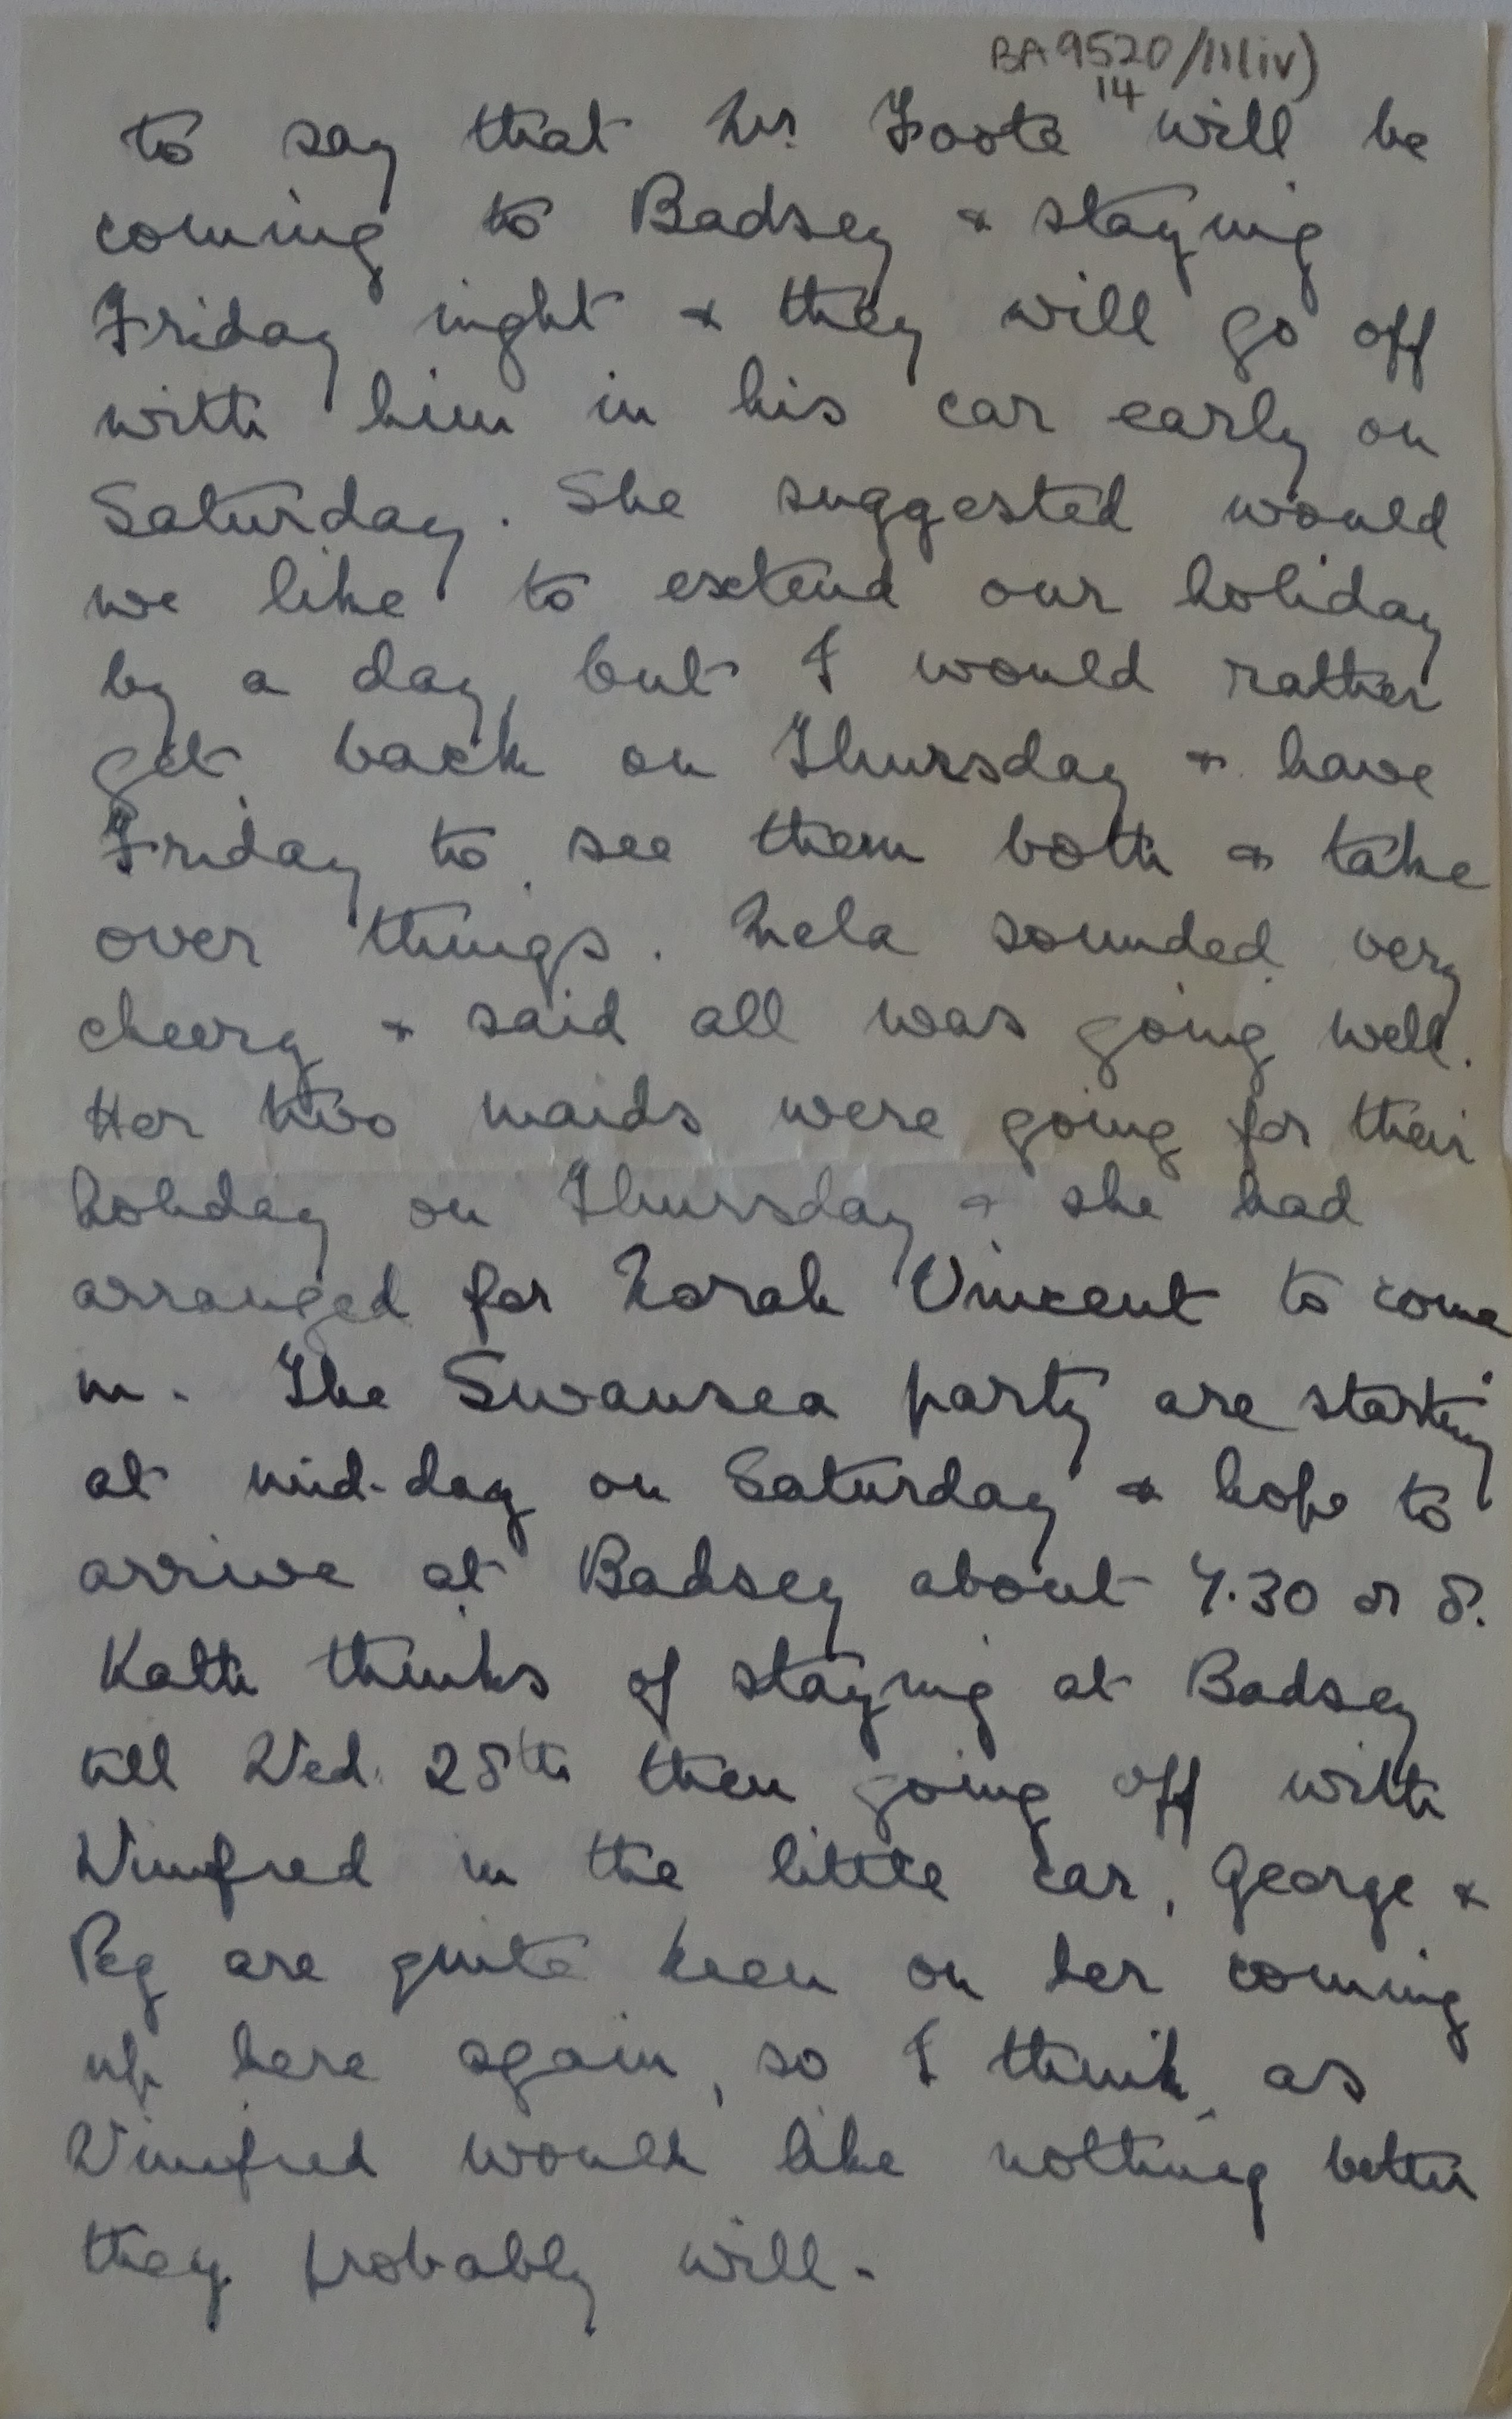 BA9520/11(iv)
14
to say that Mr. Foote will be
coming to Badsey & staying
Friday night & they will go off
with him in his car early on
Saturday. She suggested would
we like to extend our holiday
by a day, but I would rather
get back on Thursday & have
Friday to see them both & take
over things. Mela sounded very
cheery & said all was going well.
Her two maids were going for their
holiday on Thursday & she had
arranged for Norah Vincent to come
in. The Swansea party are starting
at mid-day on Saturday & hope to
arrive at Badsey about 7.30 or 8.
Kath thinks of staying at Badsey
till Wed. 28th then going off with
Winifred in the little car, George &
Peg are quite keen on her coming
up here again, so I think, as
Winifred would like nothing better
they probably will.